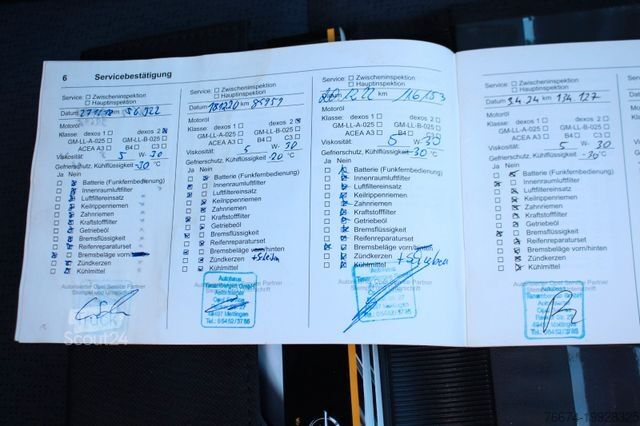 6 Servicebestätigung
Service: Zwischeninspektion
Hauptinspektion
Datum km 56.922
Motoröl
Klasse: dexos 1 dexos 2
GM-LL-A-025 GM-LL-B-025
ACEA A3 B4 C3
Viskosität: 5 W- 30
Gefrierschutz, Kühlflüssigkeit -30 °C
Ja Nein
Batterie (Funkfernbedienung)
Innenraumluftfilter
Luftfiltereinsatz
Keilrippenriemen
Zahnriemen
Kraftstofffilter
Getriebeöl
Bremsflüssigkeit
Reifenreparaturset
Bremsbeläge vorn/
Zündkerzen
Kühlmittel
Autorisierter Opel Service Partner
Service: Zwischeninspektion
Hauptinspektion
Datum km
Motoröl
Klasse: dexos 1 dexos 2
GM-LL-A-025 GM-LL-B-025
ACEA A3 B4 C3
Viskosität: 5 W- 30
Gefrierschutz, Kühlflüssigkeit -20 °C
Ja Nein
Batterie (Funkfernbedienung)
Innenraumluftfilter
Luftfiltereinsatz
Keilrippenriemen
Zahnriemen
Kraftstofffilter
Getriebeöl
Bremsflüssigkeit
Reifenreparaturset
Bremsbeläge vorn/hinten
Zündkerzen
Kühlmittel
Autohaus
49497 Mettingen
Tel.: 05452/37 85
Service: Zwischeninspektion
Hauptinspektion
12.22 116153
Motoröl
Klasse: dexos 1 dexos 2
GM-LL-A-025 GM-LL-B-025
ACEA A3 B4 C3
Viskosität: 5 W- 30
Gefrierschutz, Kühlflüssigkeit -30 °C
Ja Nein
Batterie (Funkfernbedienung)
Innenraumluftfilter
Luftfiltereinsatz
Keilrippenriemen
Zahnriemen
Kraftstofffilter
Getriebeöl
Bremsflüssigkeit
Reifenreparaturset
Bremsbeläge vorn/hinten
Zündkerzen + Scheiben
Kühlmittel
Service: Zwischeninspektion
Hauptinspektion
Datum 3.4.24 km 134.127
Motoröl
Klasse: dexos 1 dexos 2
GM-LL-A-025 GM-LL-B-025
ACEA A3 B4 C3
Viskosität: 5 W- 30
Gefrierschutz, Kühlflüssigkeit -30 °C
Ja Nein
Batterie (Funkfernbedienung)
Innenraumluftfilter
Luftfiltereinsatz
Keilrippenriemen
Zahnriemen
Kraftstofffilter
Getriebeöl
Bremsflüssigkeit
Reifenreparaturset
Bremsbeläge vorn/hinten
Zündkerzen
Kühlmittel
Autohaus
49497 Mettingen
Tel.: 05452/37 85
Truck
Scout24
76674-19928325